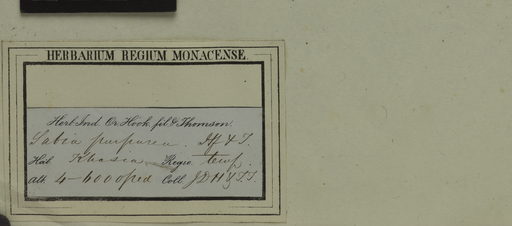 HERBARIUM REGIUM MONACENSE.
Herb. Ind. Or. Hook. fil. & Thomson.
Sabia purpurea. Hf & T.
Hab. Khasia Regio temp.
Alt. 4-6000 ped. Coll. J D H & T.T.